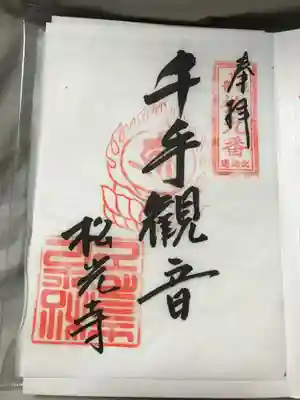 奉拝
千手観音
松光寺